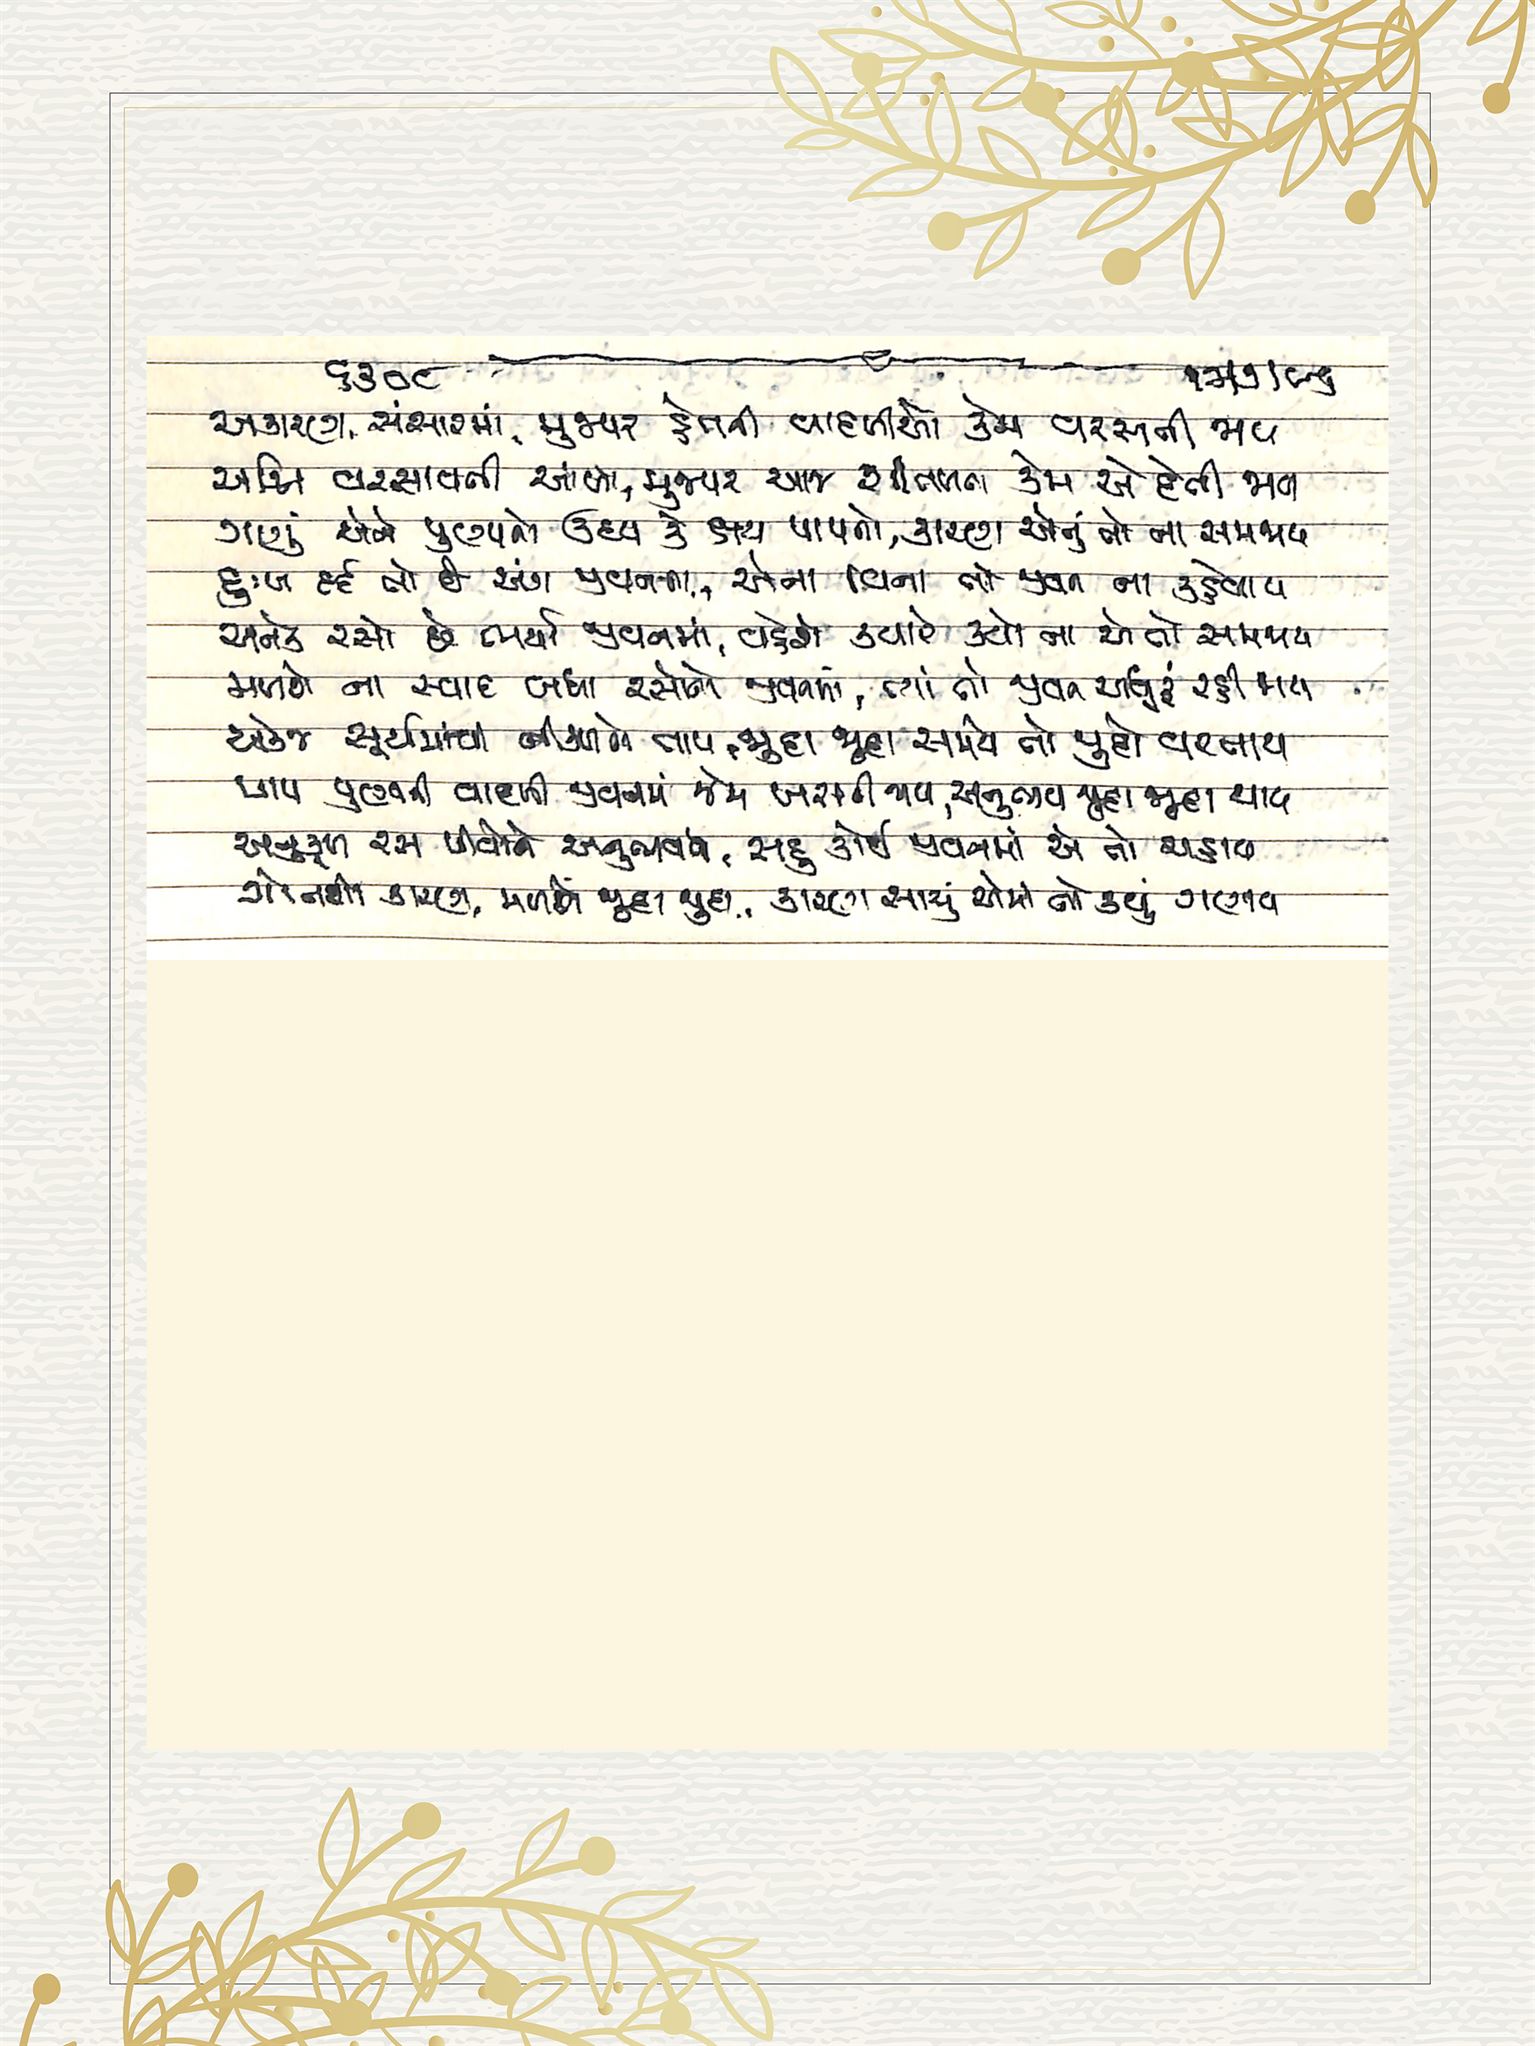 ૬૩૦૮
અકારણે, સંસારમાં, મુજપર હેતની વાદળીઓ કેમ વરસતી જાય
અગ્નિ વરસાવતી આંખો, મુજપર આજ શીતળતા કેમ એ દેતી જાય
ગણું એને પુણ્યનો ઉદય કે ક્ષય પાપનો, કારણ એનું તો ના સમજાય
દુઃખ દર્દ તો છે અંગ જીવનના, એના વિના તો જીવન ના કહેવાય
અનેક રસો છે ભર્યા જીવનમાં, વહેશે ક્યારે કયો ના એ તો સમજાય
મળશે ના સ્વાદ બધા રસોનો જીવનમાં, ત્યાં તો જીવન અધૂરું રહી જાય
એકજ સૂર્યમાંથી નીકળે તાપ, જુદા જુદા સમયે તો જુદો વરતાય
પાપ પુણ્યની વાદળી જીવનમાં જેમ ખસતી જાય, અનુભવ જુદા જુદા થાય
અનુકૂળ રસ પીવો ને અનુભવવો, સહુ કોઈ જીવનમાં એ તો ચાહે
કારણે, મળશે જુદા જુદા, કારણ સાચું એમાં તો કયું ગણાય